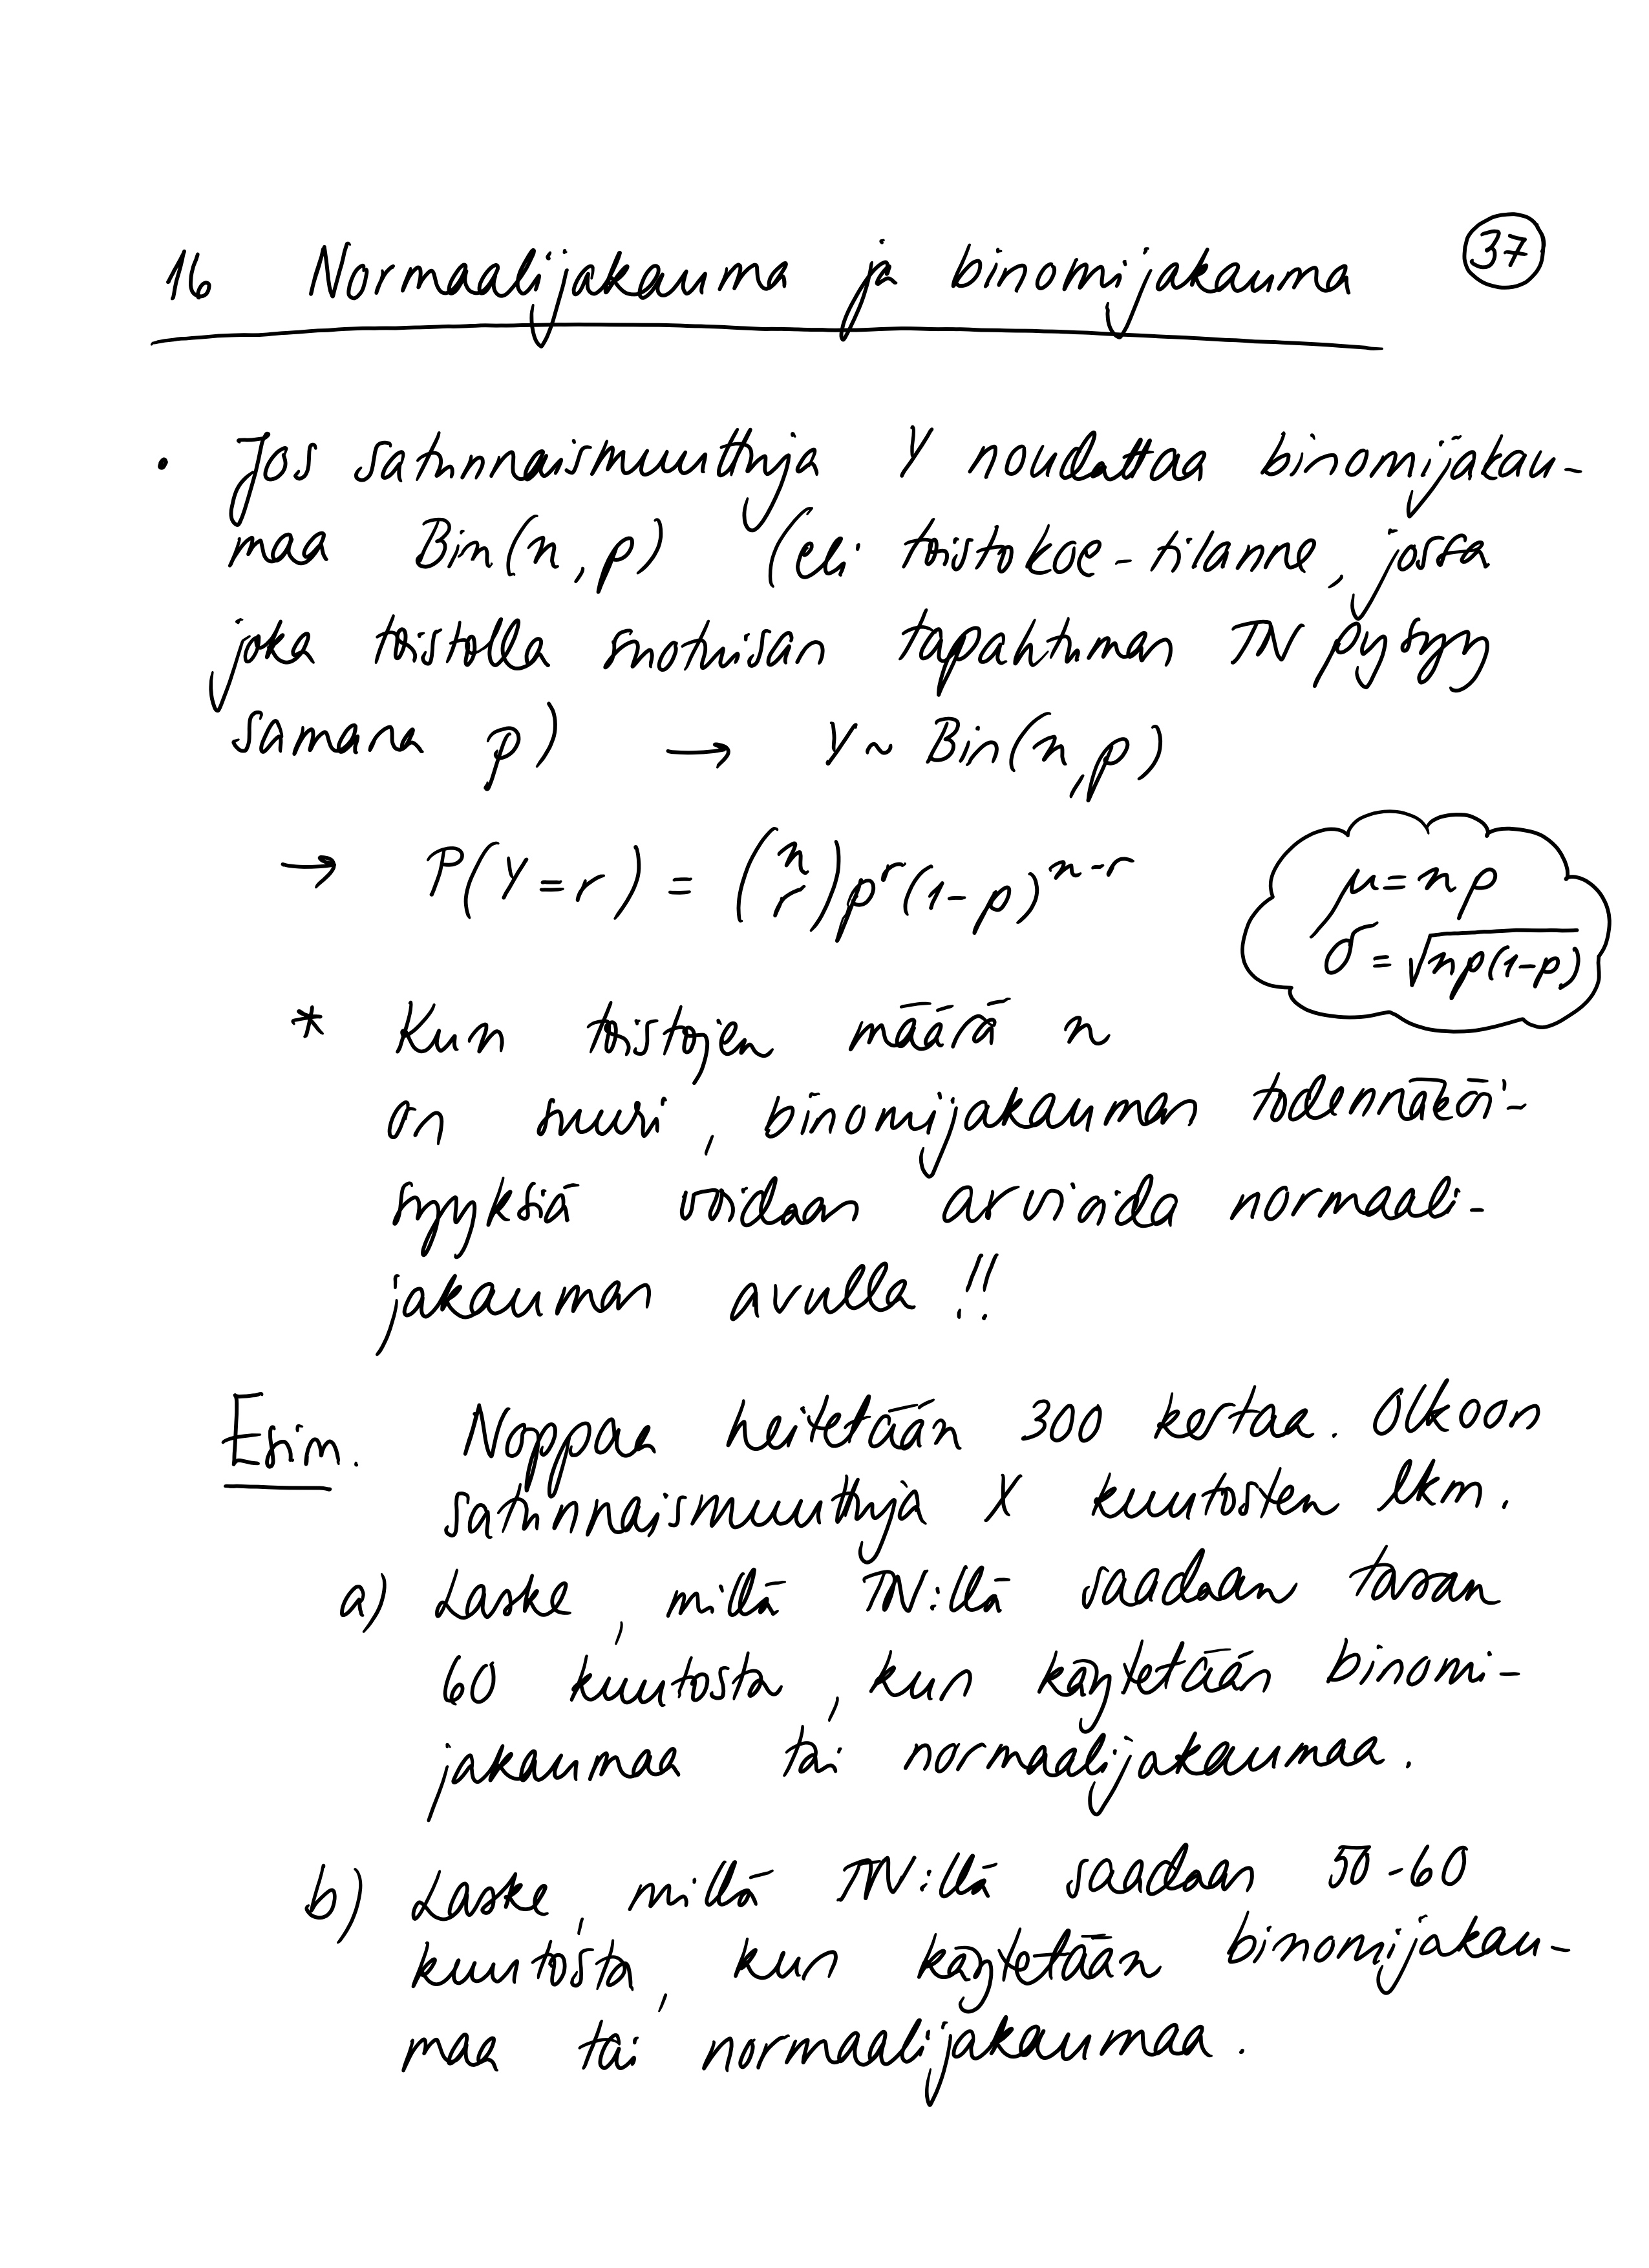 16 Normaalijakauma ja binomijakauma 37
• Jos satunnaismuuttuja Y noudattaa binomijakau-
maa Bin(n,p) (eli toistokoe-tilanne, jossa
joka toistolla suotuisan tapahtuman TN pysyy
samana p) → Y ~ Bin(n,p)
→ P(Y=r) = (n r) p^r (1-p)^(n-r)
μ = np
σ = √np(1-p)
* Kun toistojen määrä n
on suuri, binomijakauman todennäköi-
syyksiä voidaan arvioida normaali-
jakauman avulla !!
Esim. Noppaa heitetään 300 kertaa. Olkoon
satunnaismuuttuja X kuutosten lkm.
a) Laske, millä TN:llä saadaan tasan
60 kuutosta, kun käytetään binomi-
jakaumaa tai normaalijakaumaa.
b) Laske, millä TN:llä saadaan 50-60
kuutosta, kun käytetään binomijakau-
maa tai normaalijakaumaa.